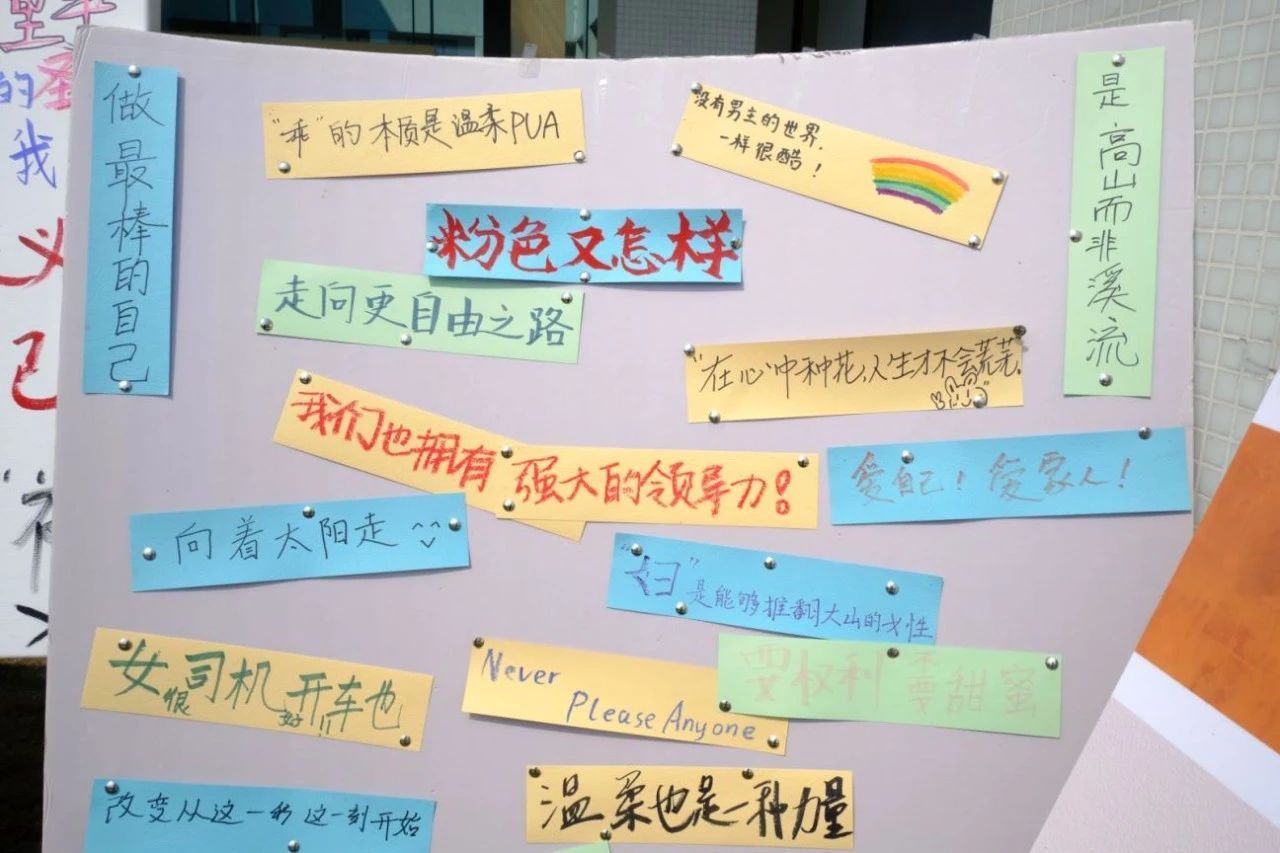 做最棒的自己
"乖"的本质是温柔PUA
没有男主的世界,
一样很酷!
是高山而非溪流
粉色又怎样
走向更自由之路
"在心中种花,人生才不会荒芜."
我们也拥有
强大的领导力!
爱自己!爱家人!
向着太阳走
"妇"是能够推翻大山的女性
女司机开车也
很好
Never
Please Anyone
要权利 不要甜蜜
改变从这一秒 这一刻开始
温柔也是一种力量
的
我
义
己